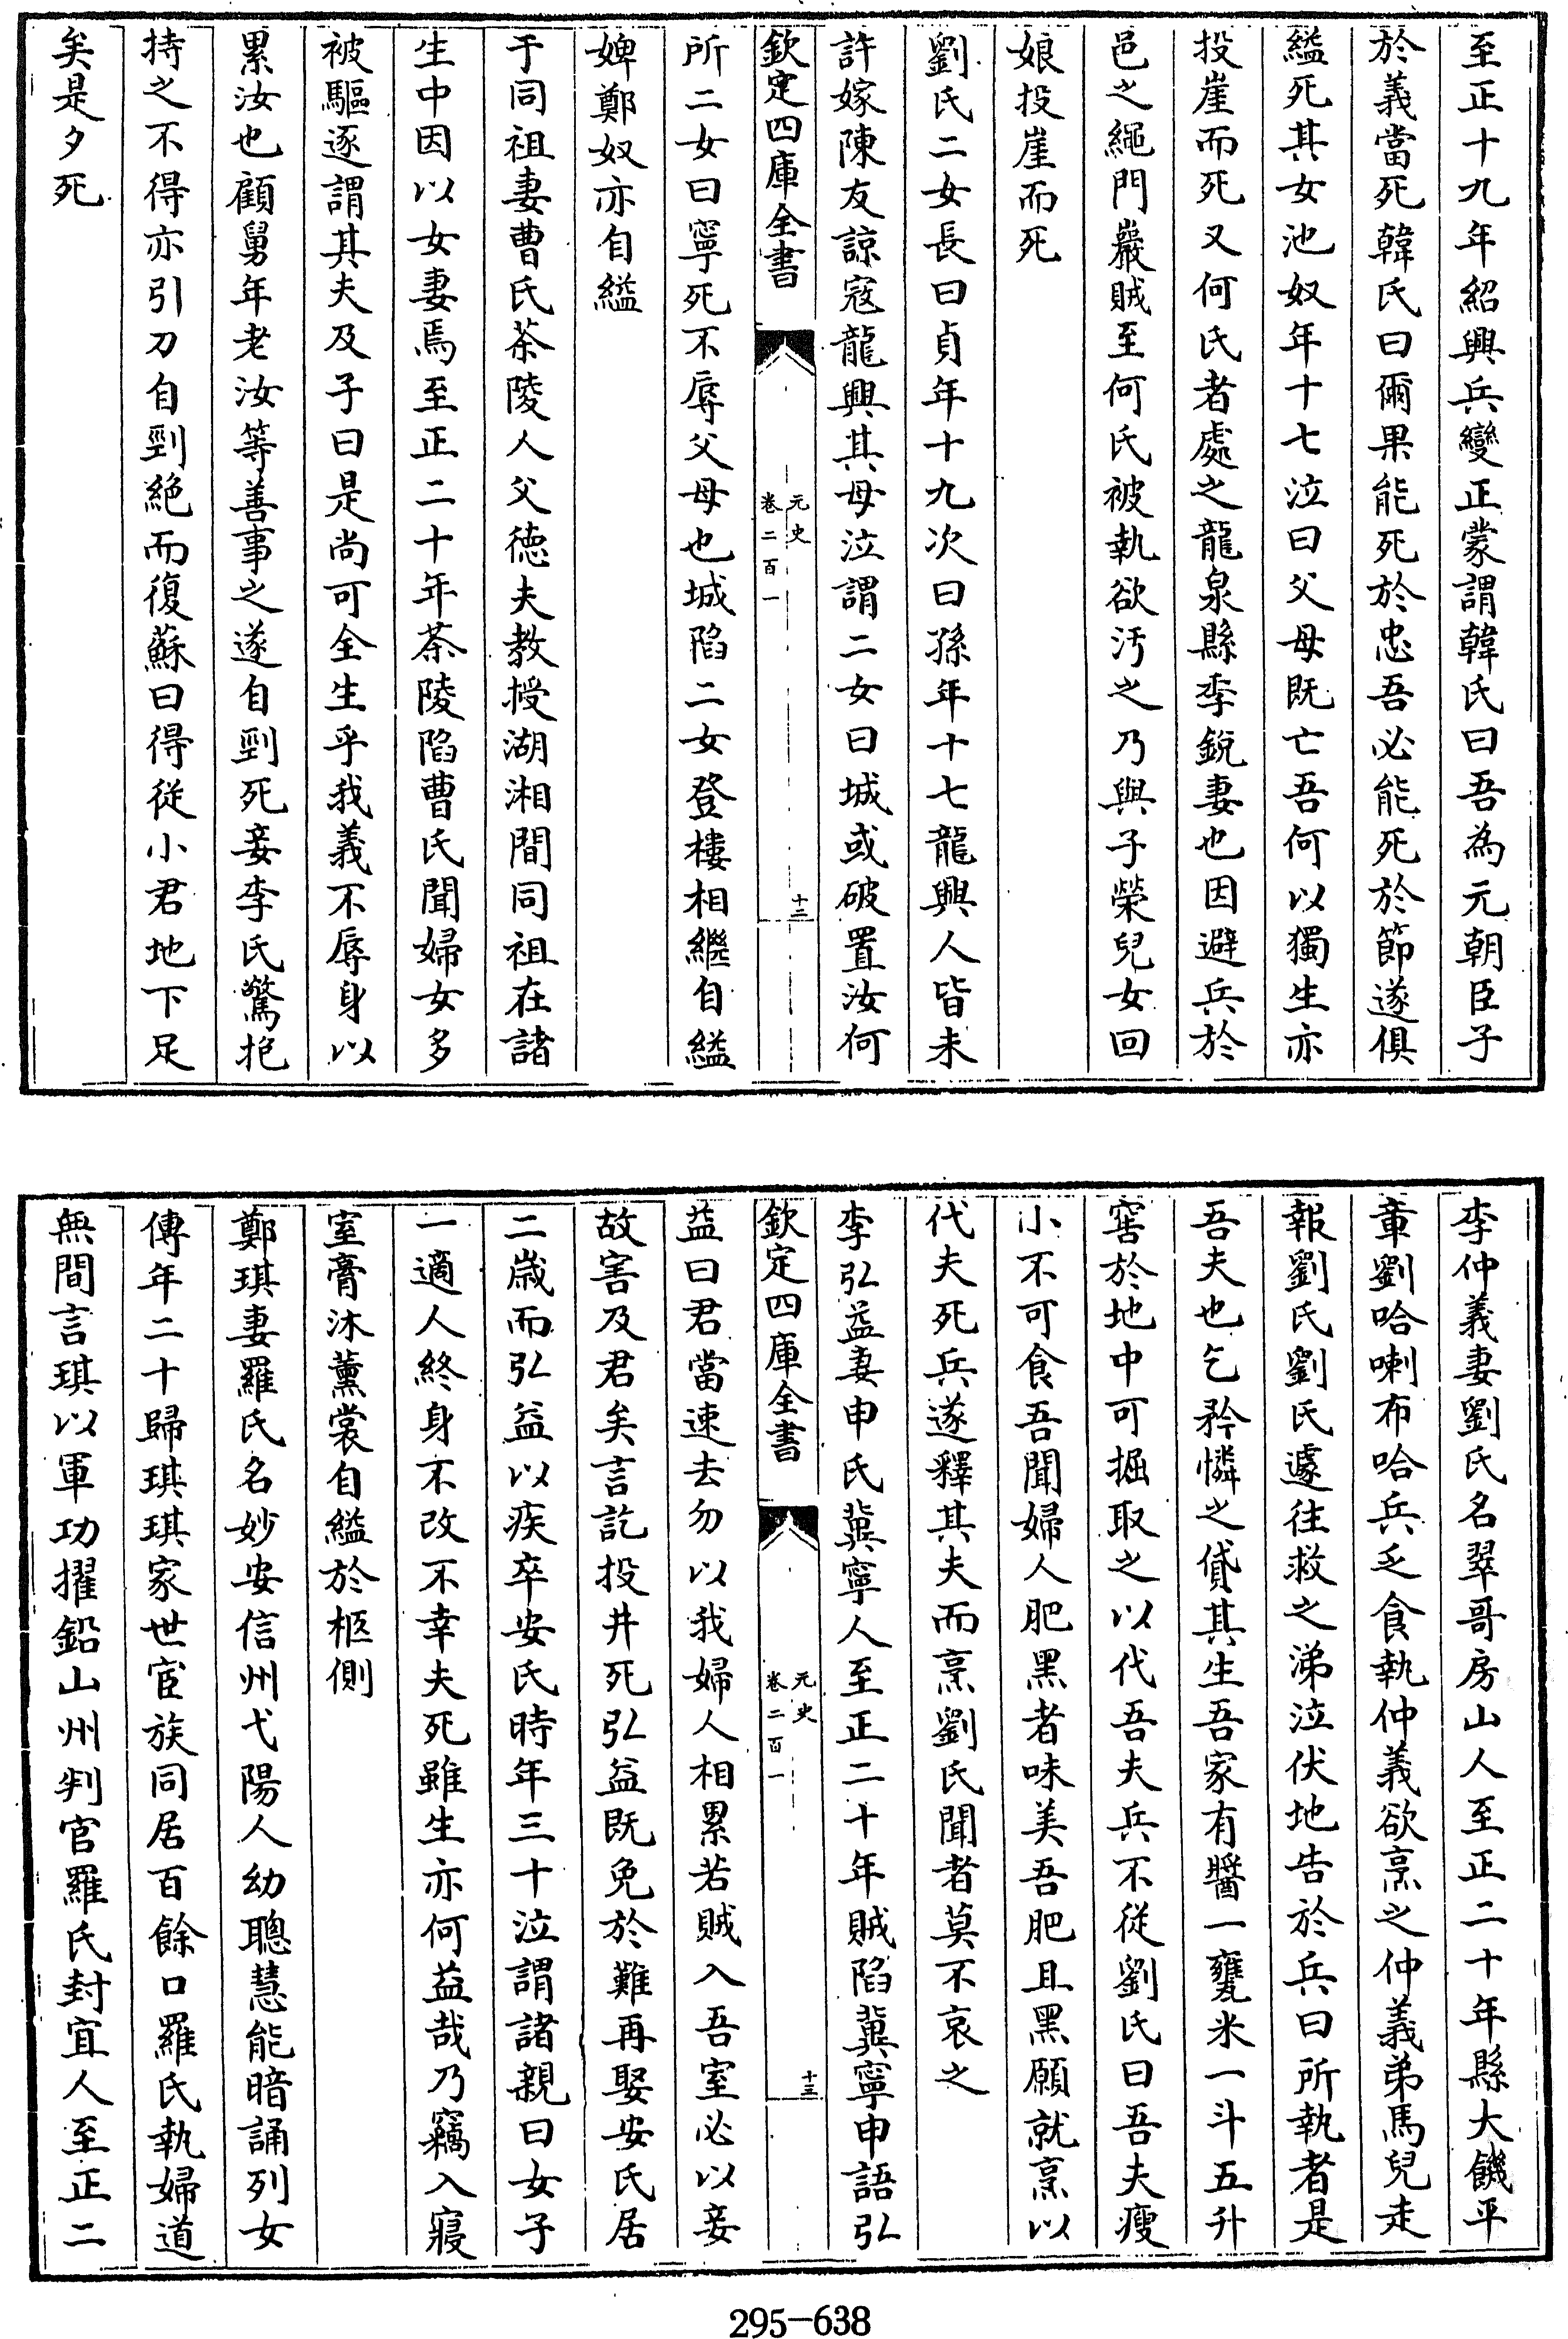 至正十九年紹興兵變正蒙謂韓氏曰吾為元朝臣子
於義當死韓氏曰爾果能死於忠吾必能死於節遂俱
縊死其女池奴年十七泣曰父母既亡吾何以獨生亦
投崖而死又何氏者處之龍泉縣季銳妻也因避兵於
邑之繩門巖賊至何氏被執欲汚之乃與子榮兒女回
娘投崖而死
劉氏二女長曰貞年十九次曰孫年十七龍興人皆未
許嫁陳友諒冦龍興其母泣謂二女曰城或破置汝何
欽定四庫全書
元史
卷二百一
十二
所二女曰寧死不辱父母也城陷二女登樓相繼自縊
婢鄭奴亦自縊
于同祖妻曹氏茶陵人父德夫教授湖湘間同祖在諸
生中因以女妻焉至正二十年茶陵陷曹氏聞婦女多
被驅逐謂其夫及子曰是尚可全生乎我義不辱身以
累汝也顧舅年老汝等善事之遂自剄死妾李氏驚抱
持之不得亦引刀自剄絶而復蘇曰得從小君地下足
矣是夕死
李仲義妻劉氏名翠哥房山人至正二十年縣大饑平
章劉哈喇布哈兵乏食執仲義欲烹之仲義弟馬兒走
報劉氏劉氏遽往救之涕泣伏地告於兵曰所執者是
吾夫也乞矜憐之貸其生吾家有醬一甕米一斗五升
窖於地中可掘取之以代吾夫兵不從劉氏曰吾夫瘦
小不可食吾聞婦人肥黑者味美吾肥且黑願就烹以
代夫死兵遂釋其夫而烹劉氏聞者莫不哀之
李弘益妻申氏冀寧人至正二十年賊陷冀寧申語弘
欽定四庫全書
元史
卷二百一
十三
益曰君當速去勿以我婦人相累若賊入吾室必以妾
故害及君矣言訖投井死弘益既免於難再娶安氏居
二歲而弘益以疾卒安氏時年三十泣謂諸親曰女子
一適人終身不改不幸夫死雖生亦何益哉乃竊入寢
室膏沐薰裳自縊於柩側
鄭琪妻羅氏名妙安信州弋陽人幼聰慧能暗誦列女
傳年二十歸琪琪家世宦族同居百餘口羅氏執婦道
無間言琪以軍功擢鉛山州判官羅氏封宜人至正二
295-638